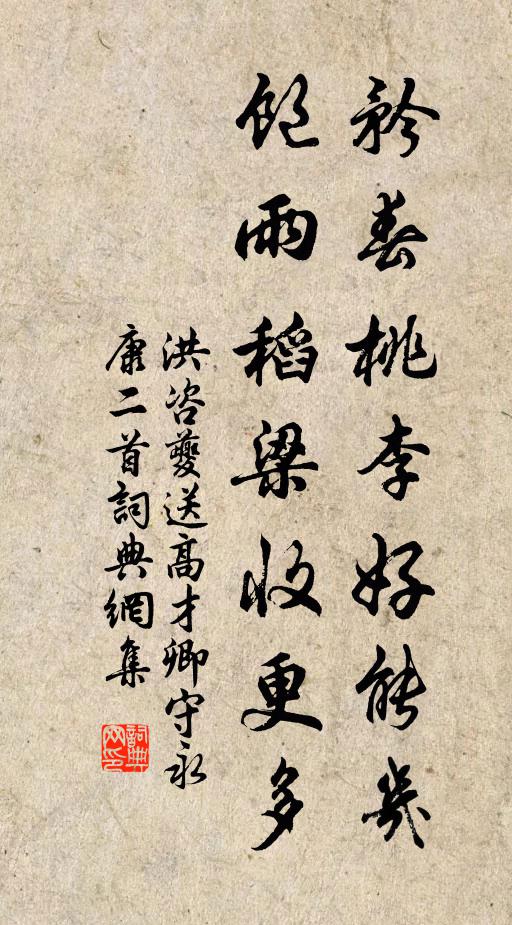 矜春桃李好能幾
飽雨稻粱收更多
洪咨夔送高才卿守永
康二首詞典網集
詞典網印